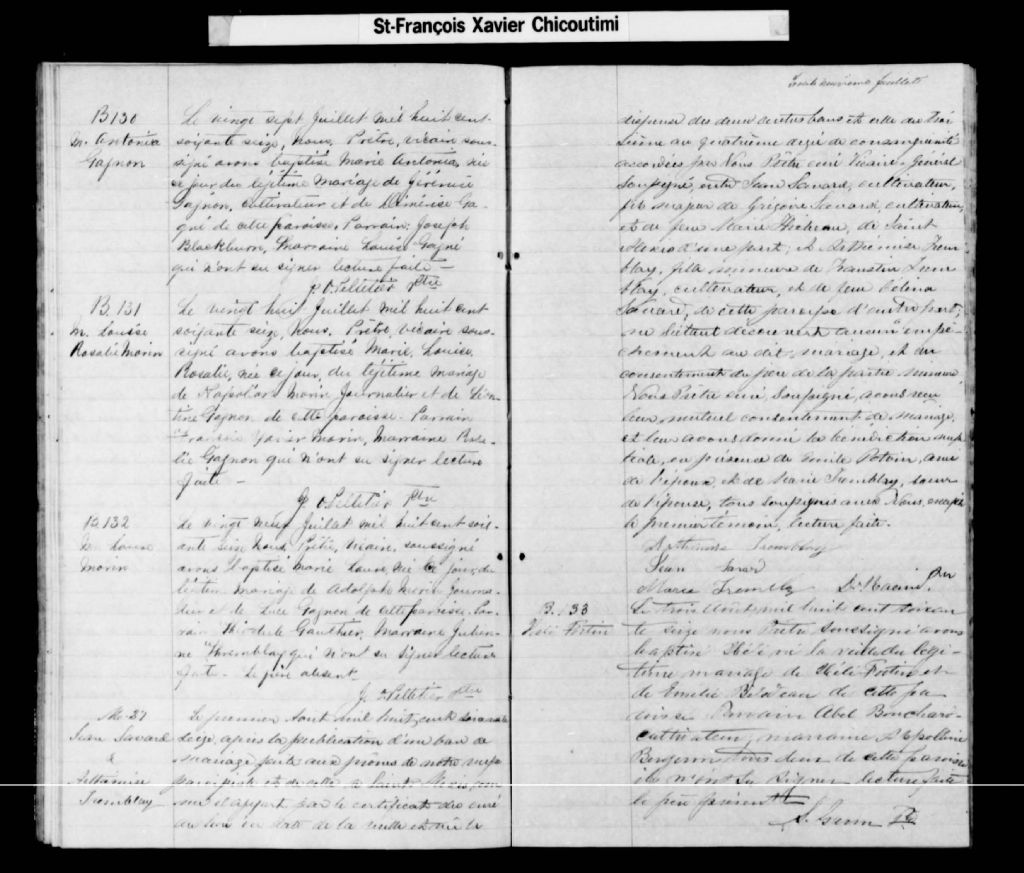 St-François Xavier Chicoutimi
B130
M. Antonia
Gagnon
Le vingt sept Juillet mil huit cent
soixante seize, Nous, Prêtre, vicaire sous-
signé avons baptisé Marie Antonia, née
ce jour du légitime mariage de
Gagnon, cultivateur et de Démérise Ga-
gné de cette paroisse, Parrain, Joseph
Blackburn, Marraine Louise Gagné
qui n'ont su signer lecture faite —
Pelletier Ptre
B. 131
M. Louise
Rosalie Morin
Le vingt huit Juillet mil huit cent
soixante seize, Nous, Prêtre, vicaire sous-
signé avons baptisé Marie, Louise,
Rosalie, née ce jour, du légitime mariage
de Napoléon Morin Journalier et de
Gagnon de cette paroisse. Parrain
Morin, Marraine Rosa-
lie Gagnon qui n'ont su signer lecture
faite —
Pelletier Ptre
B 132
M. Laure
Morin
Le vingt neuf Juillet mil huit cent soix-
ante seize Nous, Prêtre, vicaire, soussigné
avons baptisé Marie Laure, née ce jour, du
légitime mariage de Adolphe Morin Journa-
lier et de Luce Gagnon de cette paroisse. Par-
rain Gauthier, Marraine Julien-
ne Tremblay qui n'ont su signer lecture
faite. Le père absent
Pelletier Ptre
M. 27
Jean Savard
&
Arthémise
Tremblay
Le premier Aout mil huit cent soixante
seize, après la publication d'un ban de
mariage faite aux prônes de notre messe
paroissiale et de celle de Saint Alexis com-
me il appert par le certificat du curé
du lieu en date de la veille et vu la
Trente deuxième feuillet
dispense des deux autres bans et celle du troi-
sième au quatrième degré de consanguinité
accordées par Nous Prêtre curé Vicaire-Général
soussigné, entre Jean Savard, cultivateur,
fils majeur de Grégoire Savard, cultivateur,
et de feue Marie, de Saint
Alexis d'une part; et Arthémise Trem-
blay, fille mineure de Faustin Trem-
blay, cultivateur, et de feue
Savard, de cette paroisse d'autre part;
ne s'étant découvert aucun empê-
chement au dit mariage, et du
consentement du père de la partie mineure,
Nous Prêtre curé, soussigné, avons reçu
leur mutuel consentement de Mariage,
et leur avons donné la bénédiction nup-
tiale, en présence de Emile Potvin, ami
de l'époux, et de Marie Tremblay, soeur
de l'épouse, tous soussignés avec Nous, excepté
le premier témoin, lecture faite.
Arthémise Tremblay
Jean Savard
Marie Tremblay D. Racine, Ptre
B. 133
Fortin
Le trois Aout, mil huit cent soixan-
te seize nous Prêtre soussigné avons
baptisé né la veille du légi-
time mariage de Fortin et
de Emélie de cette pa-
roisse Parrain Abel Bouchard
cultivateur, marraine Appolline
Bergeron tous deux de cette paroisse
ils n'ont su signer lecture faite
le père présent
Ptre